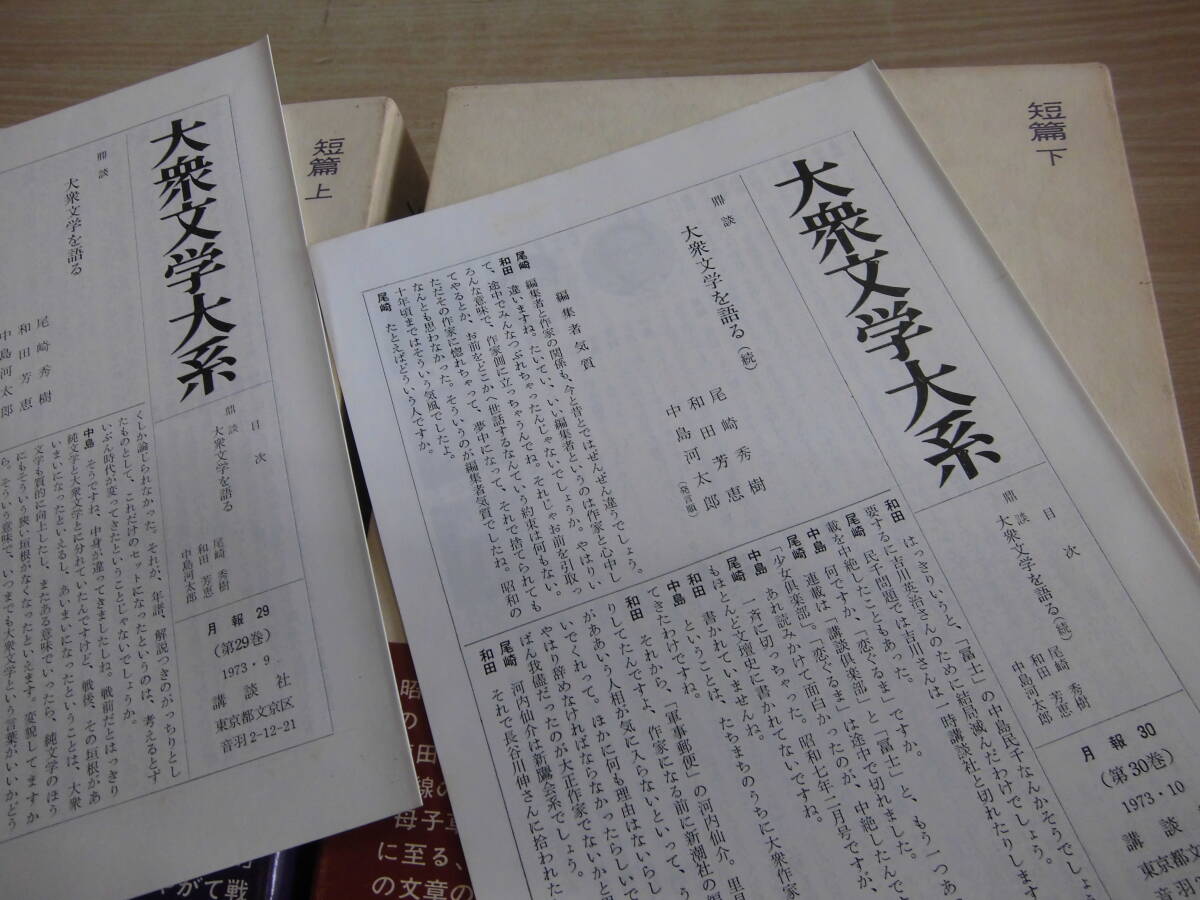 短篇
上
短篇
下
大衆文学大系
鼎談
大衆文学を語る
尾崎秀樹
和田芳恵
中島河太郎
目次
鼎談
大衆文学を語る
尾崎秀樹
和田芳恵
中島河太郎
月報29
(第29巻)
1973・9
講談社
東京都文京区
音羽2-12-21
くしか論じられなかった。それが、年譜、解説つきのがっちりとし
たものとして、これだけのセットになったというのは、考えるとず
いぶん時代が変ってきたということじゃないでしょうか。
中島 そうですね、中身が違ってきましたしね。戦前だとはっきり
純文学と大衆文学とに分れていたんですけど、戦後、その垣根があ
いまいになったといえるし、あいまいになったということは、大衆
文学も質的に向上したし、またある意味でいったら、純文学のほう
にもそういう狭い垣根がなくなったといえます。変貌してますか
ら、そういう意味で、いつまでも大衆文学という言葉がいいかどう
大衆文学大系
鼎談
大衆文学を語る(続)
尾崎秀樹
和田芳恵
中島河太郎
(発言順)
編集者気質
尾崎 編集者と作家の関係も、今と昔とではぜんぜん違うでしょう。
和田 違いますね。たいてい、いい編集者というのは作家と心中し
て、途中でみんなつぶれちゃったんじゃないでしょうか。やはりい
ろんな意味で、作家側に立っちゃうんでね。それじゃお前を引取っ
てやるとか、お前をどこかへ世話するなんていう約束は何もない。
ただその作家に惚れちゃって、夢中になって、それで捨てられても
なんとも思わなかった。そういうのが編集者気質でしたね。昭和の
十年頃まではそういう気風でしたよ。
尾崎 たとえばどういう人ですか。
目次
鼎談
大衆文学を語る(続)
尾崎秀樹
和田芳恵
中島河太郎
月報30
(第30巻)
1973・10
講談
東京都文
音羽2
和田 はっきりいうと、「冨士」の中島民千なんかそうでしょ
要するに吉川英治さんのために結局滅んだわけでしょう。
民千問題では吉川さんは一時講談社と切れたりしま
載を中絶したこともあった。
尾崎 何ですか、「恋ぐるま」ですか。
中島 連載は「講談倶楽部」と「冨士」と、もう一つあ
「少女倶楽部」。「恋ぐるま」は途中で切れました。
尾崎 あれ読みかけて面白かったのが、中絶したんで
中島 一斉に切っちゃった。昭和七年二月号ですが、
尾崎 もほとんど文壇史に書かれてないですね。
和田 書かれていませんね。
中島 ということは、たちまちのうちに大衆作家
てきたわけですね。
和田 それから、「軍事郵便」の河内仙介。里見
りしてたんですよ、作家になる前に新潮社の編
がああいう人相が気に入らないといって、う
いでくれって。ほかに何も理由はないらし
やはり辞めなければならなかったらしいで
ばん我儘だったのが大正作家でないかと思
尾崎 河内仙介は新鷹会系でしょう。
和田 それで長谷川伸さんに拾われた
昭
の
田
線の
母子
に至る、
の文章の
がて
戦